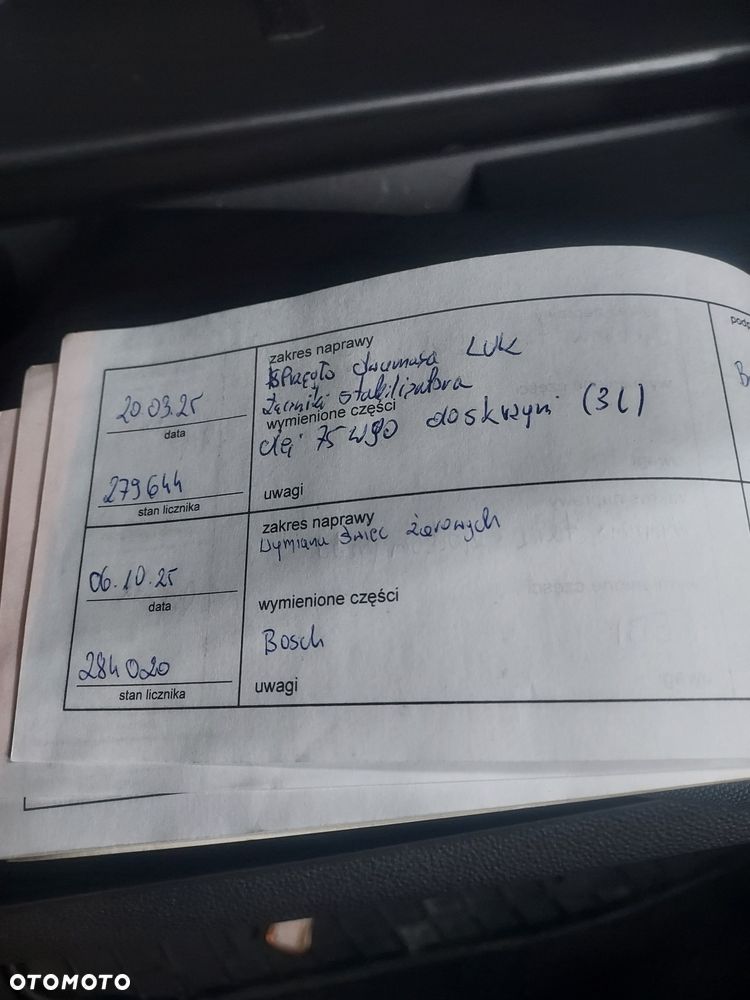 zakres naprawy
Sprzęgło dwumasa LUK
Łączniki stabilizatora
wymienione części
olej 75W90 do skrzyni (3l)
20.03.25
data
279644
stan licznika
uwagi
zakres naprawy
Wymiana świec żarowych
06.10.25
data
wymienione części
Bosch
284020
stan licznika
uwagi
OTOMOTO